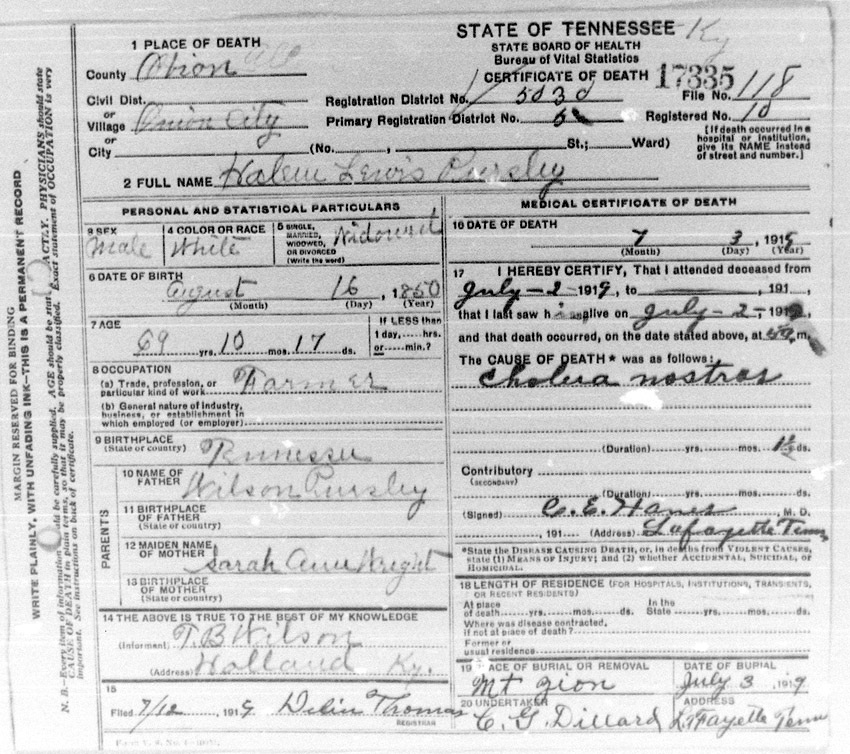 STATE OF TENNESSEE Ky
STATE BOARD OF HEALTH
Bureau of Vital Statistics
CERTIFICATE OF DEATH 17335
1 PLACE OF DEATH
County
Civil Dist.
or
Village City
or
City (No. , St.; Ward)
Registration District No. 5030 File No. 118
Primary Registration District No. Registered No. 10
[If death occurred in a
hospital or institution,
give its NAME instead
of street and number.]
2 FULL NAME Lewis Pursley
PERSONAL AND STATISTICAL PARTICULARS
3 SEX
Male
4 COLOR OR RACE
White
5 SINGLE,
MARRIED,
WIDOWED,
OR DIVORCED
(Write the word)
Widowed
6 DATE OF BIRTH
August 16, 1850
(Month) (Day) (Year)
7 AGE
69 yrs. 10 mos. 17 ds.
If LESS than
1 day, hrs.
or min.?
8 OCCUPATION
(a) Trade, profession, or
particular kind of work Farmer
(b) General nature of industry,
business, or establishment in
which employed (or employer)
9 BIRTHPLACE
(State or country) Tennessee
PARENTS
10 NAME OF
FATHER Wilson Pursley
11 BIRTHPLACE
OF FATHER
(State or country)
12 MAIDEN NAME
OF MOTHER Sarah Ann Wright
13 BIRTHPLACE
OF MOTHER
(State or country)
14 THE ABOVE IS TRUE TO THE BEST OF MY KNOWLEDGE
(Informant) T. B Wilson
(Address) Holland Ky.
15
Filed 7/12, 1919 Thomas
REGISTRAR
MEDICAL CERTIFICATE OF DEATH
16 DATE OF DEATH
7 3, 1919
(Month) (Day) (Year)
17 I HEREBY CERTIFY, That I attended deceased from
July-2-1919, to , 191
that I last saw h alive on July-2-, 191
and that death occurred, on the date stated above, at m.
The CAUSE OF DEATH* was as follows:
Cholera nostras
(Duration) yrs. mos. ds.
Contributory
(SECONDARY)
(Duration) yrs. mos. ds.
(Signed) C. E. , M. D.
, 191 (Address) Lafayette Tenn
*State the DISEASE CAUSING DEATH, or, in deaths from VIOLENT CAUSES,
state (1) MEANS OF INJURY; and (2) whether ACCIDENTAL, SUICIDAL, or
HOMICIDAL.
18 LENGTH OF RESIDENCE (FOR HOSPITALS, INSTITUTIONS, TRANSIENTS,
OR RECENT RESIDENTS)
At place
of death yrs. mos. ds.
In the
State yrs. mos. ds.
Where was disease contracted,
if not at place of death?
Former or
usual residence
19 PLACE OF BURIAL OR REMOVAL
Mt Zion
DATE OF BURIAL
July 3, 1919
20 UNDERTAKER
C. G. Dillard
ADDRESS
LaFayette Tenn
MARGIN RESERVED FOR BINDING
WRITE PLAINLY, WITH UNFADING INK—THIS IS A PERMANENT RECORD
N. B.—Every item of information should be carefully supplied. AGE should be stated EXACTLY. PHYSICIANS should state
CAUSE OF DEATH in plain terms, so that it may be properly classified. Exact statement of OCCUPATION is very
important. See instructions on back of certificate.